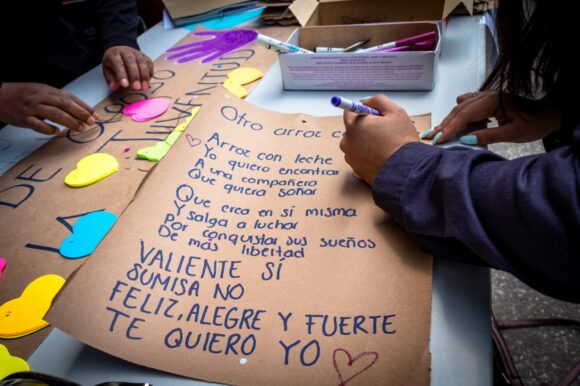 Otro arroz co
Arroz con leche
Yo quiero encontrar
A una compañera
Que quiera soñar
Que crea en sí misma
Y salga a luchar
Por conquistar sus sueños
De más libertad
VALIENTE SÍ
SUMISA NO
FELIZ, ALEGRE Y FUERTE
TE QUIERO YO
DE
LA
JUVENTUD